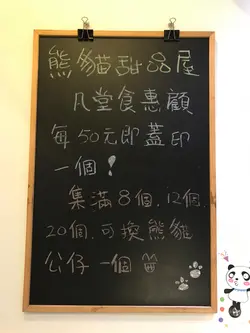 熊貓甜品屋
凡堂食惠顧
每50元即蓋印
一個!
集滿8個,12個,
20個,可換熊貓
公仔一個